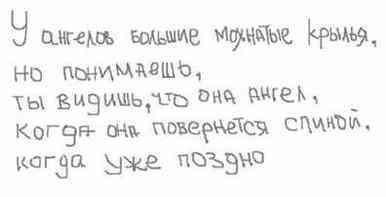 У ангелов большие мохнатые крылья,
но понимаешь,
ты видишь, что она ангел,
когда она повернется спиной.
когда уже поздно